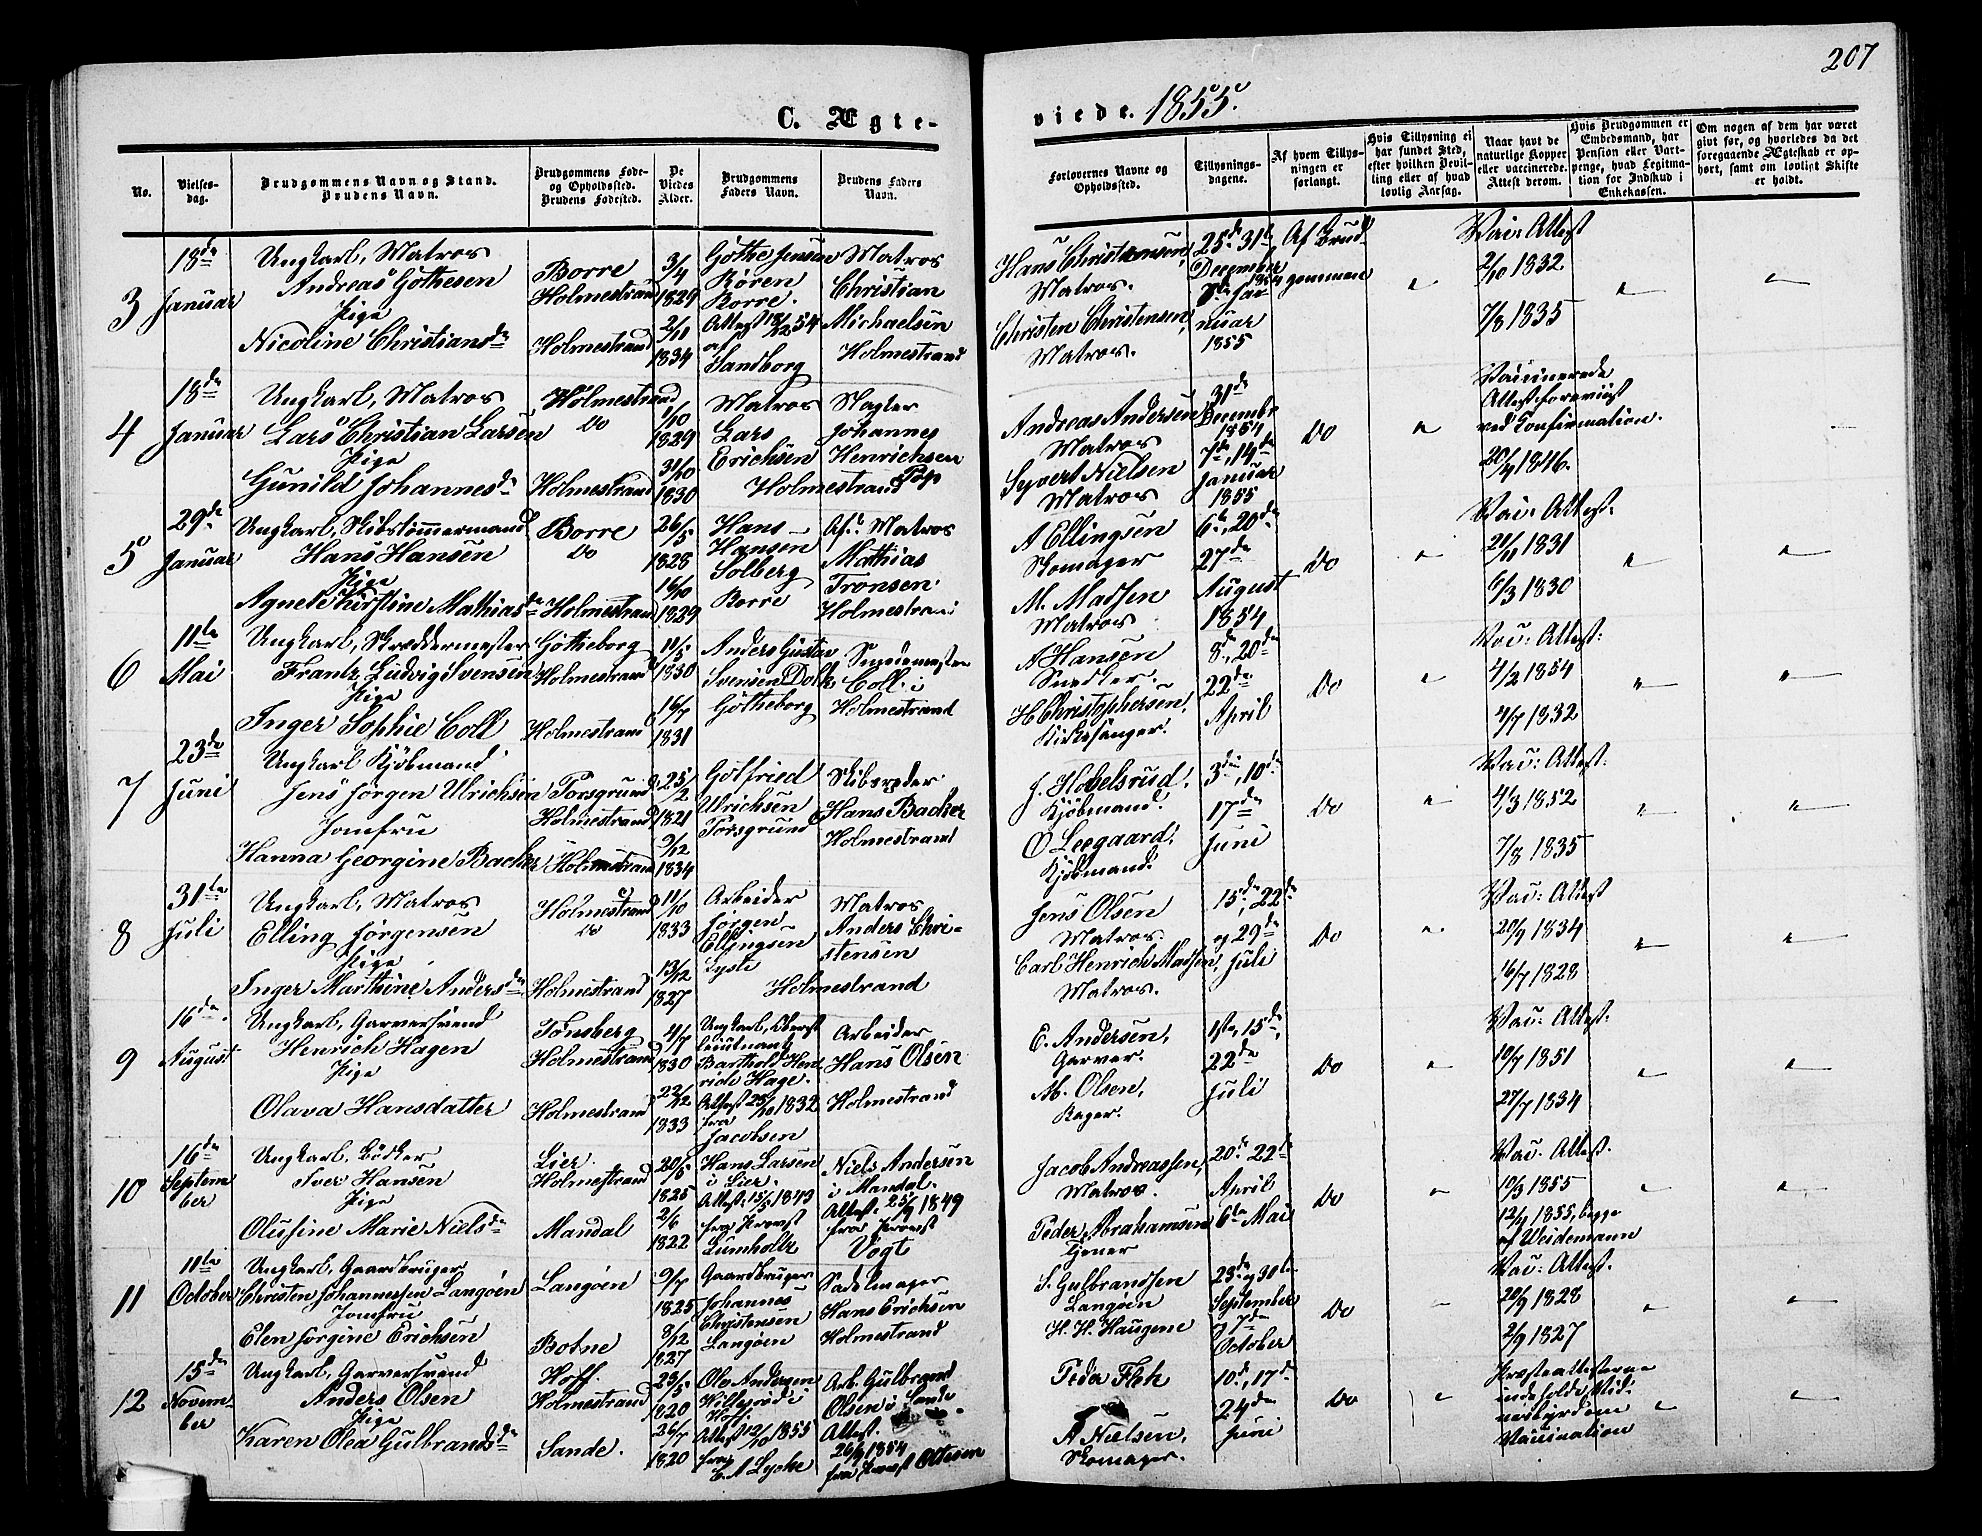 207
C. Ægte-
viede. 1855.
No.
Vielses-
dag.
Brudgommens Navn og Stand.
Brudens Navn.
Brudgommens Føde-
og Opholdssted.
Brudens Fødested.
De
Viedes
Alder.
Brudgommens
Faders Navn.
Brudens Faders
Navn.
Forlovernes Navne og
Opholdssted.
Tillysnings-
dagene.
Af hvem Tillys-
ningen er
forlangt.
Hvis Tillysning ei
har fundet Sted,
efter hvilken Bevil-
ling eller af hvad
lovlig Aarsag.
Naar havt de
naturlige Kopper
eller vaccinerede.
Attest derom.
Hvis Brudgommen er
Embedsmand, har
Pension eller Vart-
penge, hvad Legitima-
tion for Indskud i
Enkekassen.
Om nogen af dem har været
givt før, og hvorledes da det
foregaaende Ægteskab er op-
hørt, samt om lovligt Skifte
er holdt.
3
18de
Januar
Ungkarl, Matros
Andreas Göthesen
Pige
Nicoline Christiansdr
Borre
Holmestrand
Holmestrand
3/4
1829
2/11
1834
Göthe Jensen
Rören
Borre.
Attest 18/12 54
af
Sandborg
Matros
Christian
Michaelsen
Holmestrand
Hans Christensen,
Matros.
Christen Christensen,
Matros.
25de 31te
December
Januar
1855
Af Brud-
gommen
"
Vac: Attest
2/10 1832
7/8 1835
"
"
4
18de
Januar
Ungkarl, Matros
Lars Christian Larsen
Pige
Gunild Johannesdr
Holmestrand
Do
Holmestrand
1/10
1829
31/10
1830
Matros
Lars
Erichsen
Slagter
Johannes
Henrichsen
Holmestrand
Andreas Andersen
Matros
Syvert Nielsen
Matros
31de
Decembr
1854
7de, 14de
Januar
1855
Do
"
Vaccinerede
Attest foreviist
ved Confirmation.
20/4 1846.
5
29de
Januar
Ungkarl, Skibstömmermand
Hans Hansen
Pige
Agnete Kirstine Mathiasdr
Borre
Do
Holmestrand
26/5
1828
16/10
1829
Hans
Hansen
Solberg
Borre
Afd. Matros
Mathias
Tronsen
Holmestrand
A Ellingsen
Skomager
M. Madsen
Matros
6te, 20de
27de
August
1854
Do
"
Vac: Attest:
21/11 1831
6/3 1830
"
"
6
11te
Mai
Ungkarl, Skreddermester
Frantz Ludvig Svensen
Pige
Inger Sophie Coll
Götheborg
Holmestrand
Holmestrand
11/5
1830
16/7
1831
Anders Gustav
Svensen Dolk
Götheborg
Smedemester
Coll i
Holmestrand
A Hansen
Snedker.
H Christophersen,
Kirkesanger.
8de, 20de
22de
April
Do
"
Vac: Attest:
4/2 1854
4/7 1832
"
"
7
23de
Juni
Ungkarl Kjöbmand
Jens Jörgen Ulrichsen
Jomfru
Hanna Georgine Backer
Porsgrund
Holmestrand
Holmestrand
25/2
1821
9/12
1834
Gotfried
Ulrichsen
Porsgrund
Skibsreder
Hans Backer
Holmestrand
J. Hobelsrud,
Kjöbmand.
O Leegaard,
Kjöbmand.
3die, 10de
17de
Juni
Do
"
Vac: Attest:
4/3 1852
7/8 1835
"
"
8
31te
Juli
Ungkarl, Matros
Elling Jörgensen
Pige
Inger Marthine Andersdr
Holmestrand
Do
Holmestrand
11/10
1833
13/12
1827
Arbeider
Jörgen
Ellingsen
Matros
Anders Chri-
stensen
Holmestrand
Jens Olsen
Matros.
Carl Henrich Madsen,
Matros.
15de, 22de
og 29de
Juli
Do
"
Vac: Attest
20/9 1834
16/7 1828
"
"
9
16de
August
Ungkarl, Garversvend
Henrich Hagen
Pige
Olava Hansdatter
Tönsberg
Holmestrand
Holmestrand
4/7
1830
22/12
1833
Ungkarl, Oberst
lieutnant
Barthold Hen
rich Hage.
Attest 25/10 1832
fra
Jacobsen
Arbeider
Hans Olsen
Holmestrand
E. Andersen,
Garver.
M. Olsen,
Bager.
1ste, 15de,
22de
Juli
Do
"
Vac: Attest:
10/7 1851
27/7 1834
"
"
10
16de
Septem
ber
Ungkarl, Bödker
Iver Hansen
Pige
Olusine Marie Nielsdr
Lier.
Holmestrand
Mandal
20/5
1825
2/6
1822
Hans Larsen
i Lier.
Attest. 15/5 1843
fra Provst
Lumholtz
Niels Andersen
i Mandal.
Attest. 25/9 1849
fra Provst
Vogt
Jacob Andreassen,
Matros.
Peder Abrahamsen
Tjener
20de 22de
April
6te Mai
Do
"
Vac. Attest.
10/3 1855
12/9 1855, begge
af Weidemann
"
"
11
11te
October
Ungkarl, Gaardbruger
Christen Johannessen Langöen
Jomfru
Elen Jörgine Erichsen
Langöen
Botne
9/7
1825
8/12
1827
Gaardbruger
Johannes
Christensen
Langöen
Sadelmager
Hans Erichsen
Holmestrand
S. Gulbrandsen
Langöen
H. H. Haugene
23de og 30te
September
og 7de
October
Do
"
Vac: Attest.
20/9 1828
2/9 1827
"
"
12
15de
Novem-
ber
Ungkarl, Garversvend
Anders Olsen
Pige
Karen Olea Gulbrandsdr
Hoff.
Holmestrand
Sande.
23/5
1820
26/7
1820
Ole Andersen
Hillesröd i
Hoff.
Attest 12/10 1855
fra
C A Lycke
Arb. Gulbrand
Olsen i Sande
Attest.
26/9 1854
fra Provst Ottesen
Peder
A Nielsen,
Skomager.
10de, 17de
24de
Juni
Do
"
Præsteattesterne
indeholde Vid-
nesbyrd om
Vaccination
"
"